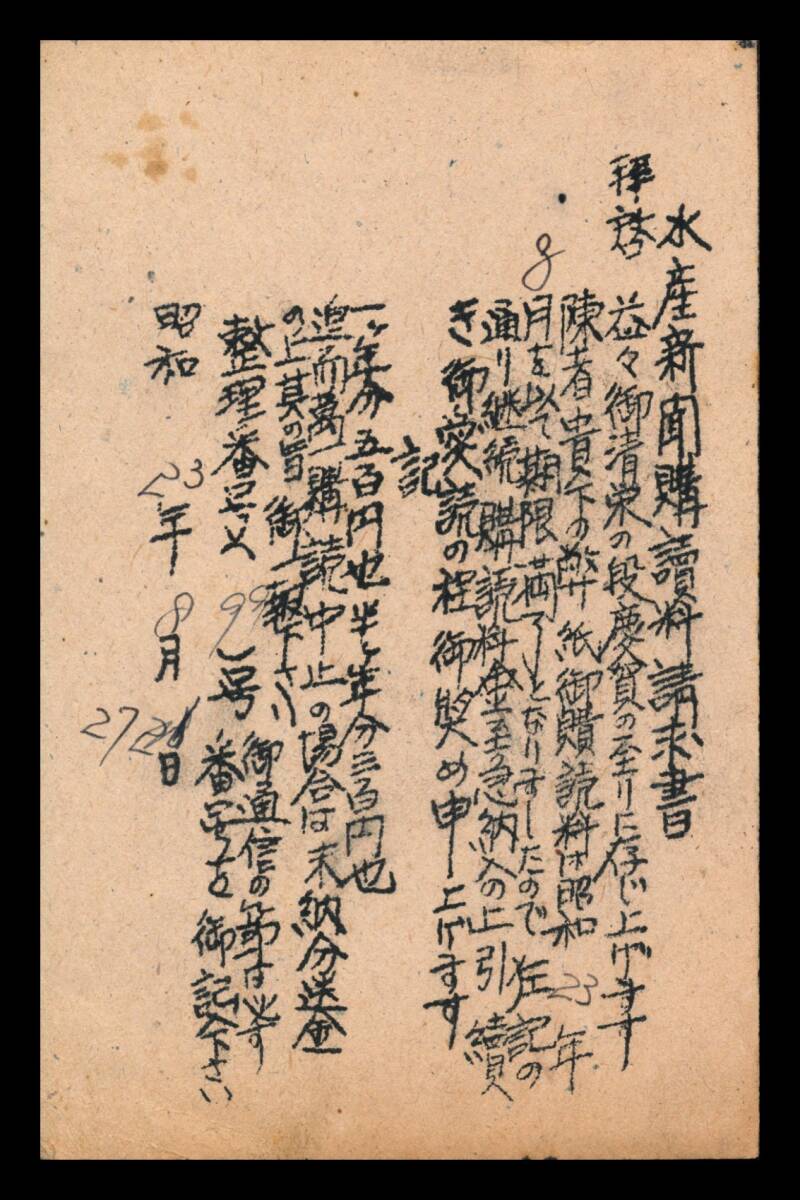 水産新聞購讀料請求書
拝啓
益々御清栄の段慶賀の至りに存じ上げます
陳者貴下の弊紙御購読料は昭和23年
8月を以て期限満了となりましたので左記の
通り継続購読料金至急納入の上引續
き御愛読の程御奨め申し上げます
記
一ヶ年分五百円也半ヶ年分三百円也
追而萬一購読中止の場合は未納分送金
の上其の旨御一報下さい御通信の節は必ず
整理番号ヘ 号番号を御記入下さい
昭和23年8月27日